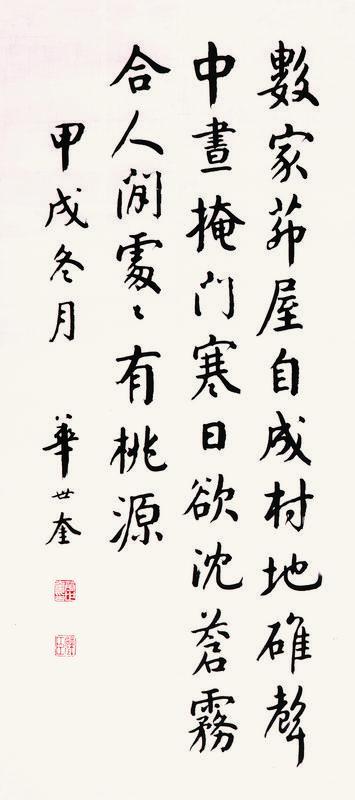 數家茆屋自成村地碓聲
中晝掩門寒日欲沈蒼霧
合人閒處々有桃源
甲戌冬月 華世奎